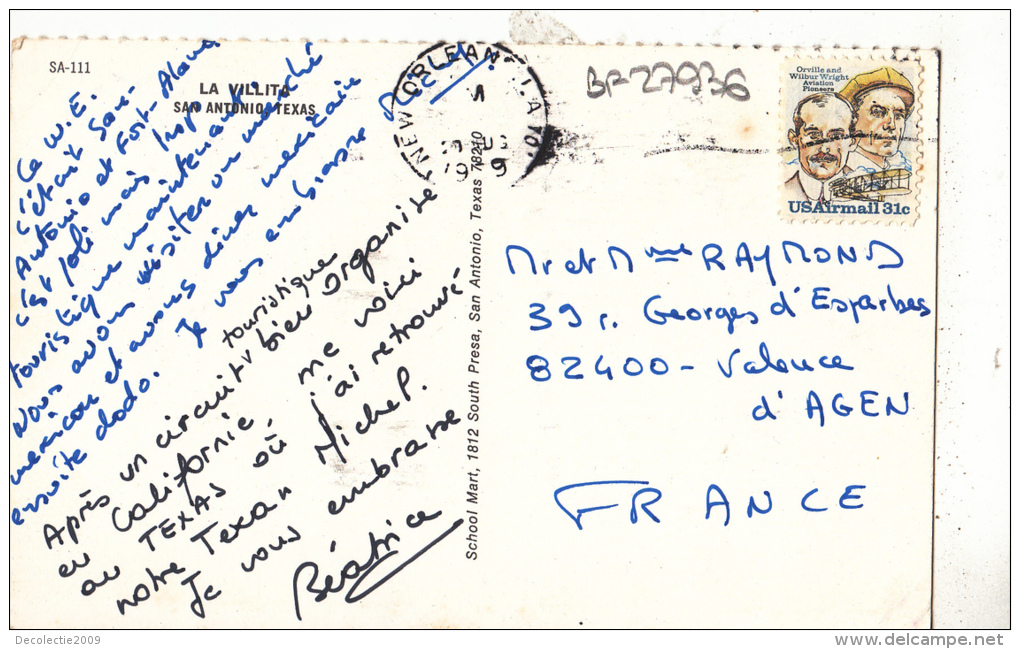 SA-111
LA VILLITA
SAN ANTONIO, TEXAS
Ce W.E.
c'était San-
Antonio et Fort-Alamo
c'est joli mais trop
touristique maintenant.
Nous avons visiter un marché
mexicain et avons dîner mexicain
ensuite dodo. Je vous embrasse
Après un circuit touristique
bien organisé
en Californie, me voici
au TEXAS où j'ai retrouvé
notre Texan Michel P.
Je vous embrasse
Béatrice
School Mart, 1812 South Presa, San Antonio, Texas 78210
NEW ORLEANS
BF-27936
Orville and
Wilbur Wright
Aviation
Pioneers
USAirmail 31c
Mr et Mme RAYMOND
39 r. Georges d'Esparbes
82400 - Valence
d'AGEN
FRANCE
Decolectie2009
www.delcampe.net